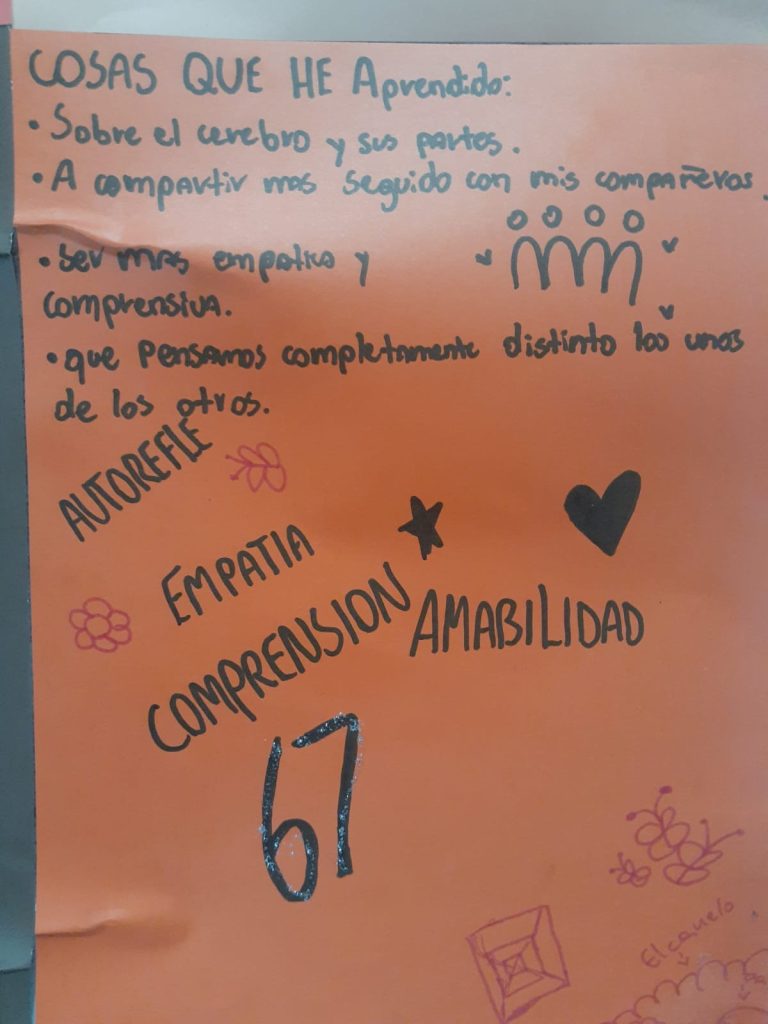 COSAS QUE HE Aprendido:
• Sobre el cerebro y sus partes.
• A compartir mas seguido con mis compañeros.
• Ser mas empatica y
comprensiva.
• que pensamos completamente distinto los unos
de los otros.
AUTOREFLE
EMPATIA
COMPRENSION
AMABILIDAD
67